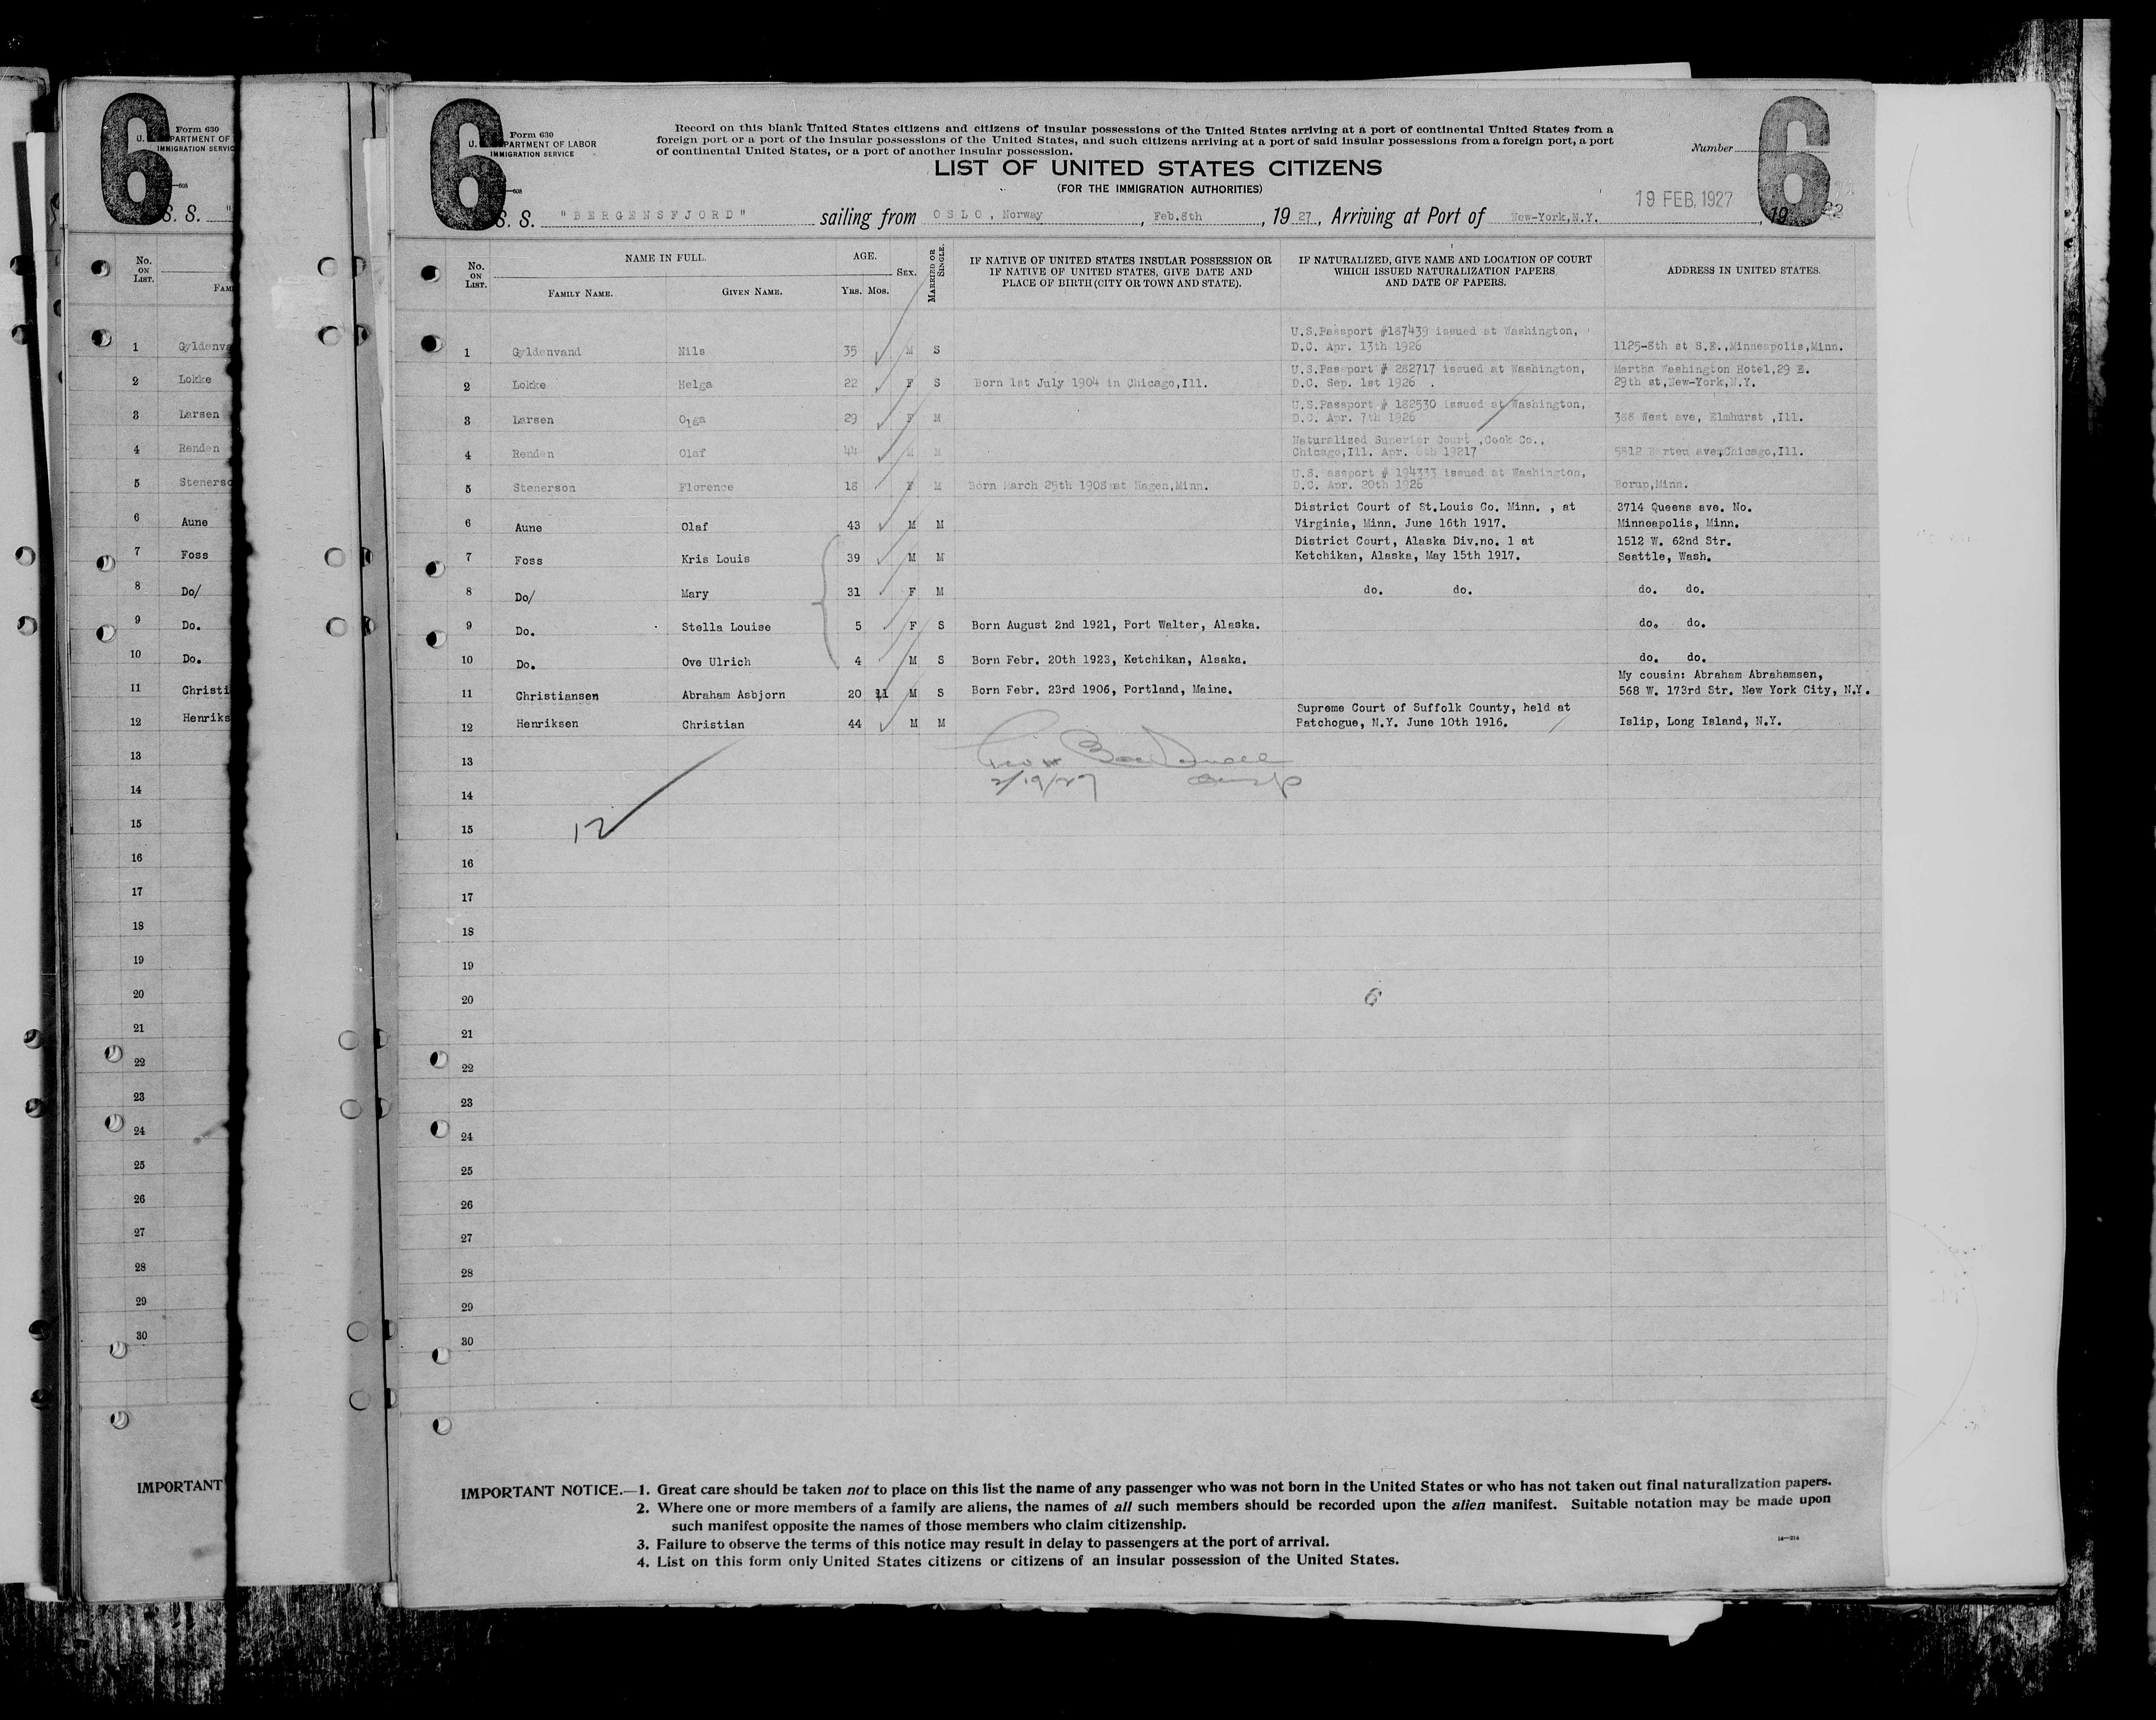 6
Form 630
U. S. DEPARTMENT OF LABOR
IMMIGRATION SERVICE
Record on this blank United States citizens and citizens of insular possessions of the United States arriving at a port of continental United States from a
foreign port or a port of the insular possessions of the United States, and such citizens arriving at a port of said insular possessions from a foreign port, a port
of continental United States, or a port of another insular possession.
Number
6
LIST OF UNITED STATES CITIZENS
(FOR THE IMMIGRATION AUTHORITIES)
19 FEB. 1927
S. S. "BERGENSFJORD" sailing from OSLO, Norway, Feb.8th, 19 27, Arriving at Port of New-York,N.Y., 19
No. ON LIST. NAME IN FULL. FAMILY NAME. GIVEN NAME. AGE. YRS. MOS. SEX. MARRIED OR SINGLE. IF NATIVE OF UNITED STATES INSULAR POSSESSION OR IF NATIVE OF UNITED STATES, GIVE DATE AND PLACE OF BIRTH (CITY OR TOWN AND STATE). IF NATURALIZED, GIVE NAME AND LOCATION OF COURT WHICH ISSUED NATURALIZATION PAPERS, AND DATE OF PAPERS. ADDRESS IN UNITED STATES.
U.S.Passport #187439 issued at Washington,
1 Gyldenvand Nils 35 M S D.C. Apr. 13th 1926 1125-8th st S.E.,Minneapolis,Minn.
U.S.Passport # 282717 issued at Washington, Martha Washington Hotel,29 E.
2 Lokke Helga 22 F S Born 1st July 1904 in Chicago,Ill. D.C. Sep. 1st 1926 . 29th st,New-York,N.Y.
U.S.Passport # 182530 issued at Washington,
3 Larsen Olga 29 F M D.C. Apr. 7th 1926 388 West ave, Elmhurst ,Ill.
Naturalized Superior Court ,Cook Co.,
4 Renden Olaf 44 M M Chicago,Ill. Apr. 8th 19217 5812 ave,Chicago,Ill.
U.S. Passport # 194333 issued at Washington,
5 Stenerson Florence 18 F M Born March 25th 1908 at Hagen,Minn. D.C. Apr. 20th 1926 Borup,Minn.
District Court of St.Louis Co. Minn. , at 3714 Queens ave. No.
6 Aune Olaf 43 M M Virginia, Minn. June 16th 1917. Minneapolis, Minn.
District Court, Alaska Div.no. 1 at 1512 W. 62nd Str.
7 Foss Kris Louis 39 M M Ketchikan, Alaska, May 15th 1917. Seattle, Wash.
8 Do/ Mary 31 F M do. do. do. do.
9 Do. Stella Louise 5 F S Born August 2nd 1921, Port Walter, Alaska. do. do.
10 Do. Ove Ulrich 4 M S Born Febr. 20th 1923, Ketchikan, Alsaka. do. do.
My cousin: Abraham Abrahamsen,
11 Christiansen Abraham Asbjorn 20 11 M S Born Febr. 23rd 1906, Portland, Maine. 568 W. 173rd Str. New York City, N.Y.
Supreme Court of Suffolk County, held at
12 Henriksen Christian 44 M M Patchogue, N.Y. June 10th 1916. Islip, Long Island, N.Y.
13
2/19/27
14
12
15
16
17
18
19
20
6
21
22
23
24
25
26
27
28
29
30
IMPORTANT NOTICE.—1. Great care should be taken not to place on this list the name of any passenger who was not born in the United States or who has not taken out final naturalization papers.
2. Where one or more members of a family are aliens, the names of all such members should be recorded upon the alien manifest. Suitable notation may be made upon
such manifest opposite the names of those members who claim citizenship.
3. Failure to observe the terms of this notice may result in delay to passengers at the port of arrival.
4. List on this form only United States citizens or citizens of an insular possession of the United States.
14—214
6
Form 630
IMMIGRATION SERVIC
S. S. "
No. ON LIST.
FAM
1 Gyldenva
2 Lokke
3 Larsen
4 Renden
5 Stenerso
6 Aune
7 Foss
8 Do/
9 Do.
10 Do.
11 Christi
12 Henriks
13
14
15
16
17
18
19
20
21
22
23
24
25
26
27
28
29
30
IMPORTANT